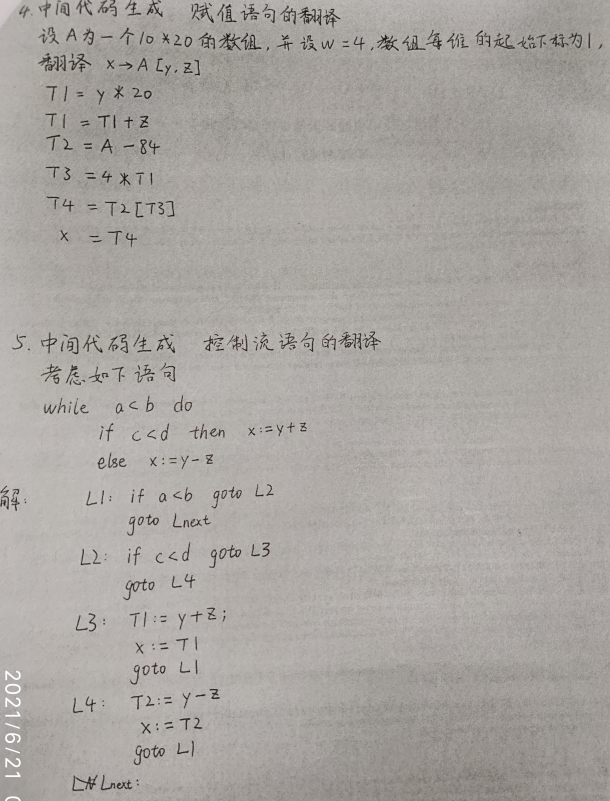 4. 中间代码生成 赋值语句的翻译
设A为一个10*20的数组,并设w=4,数组每维的起始下标为1,
翻译 x→A[y,z]
T1 = y*20
T1 = T1+z
T2 = A-84
T3 = 4*T1
T4 = T2[T3]
x = T4
5. 中间代码生成 控制流语句的翻译
考虑如下语句
while a<b do
if c<d then x:=y+z
else x:=y-z
解:
L1: if a<b goto L2
goto Lnext
L2: if c<d goto L3
goto L4
L3: T1:= y+z;
x:= T1
goto L1
L4: T2:= y-z
x:= T2
goto L1
Lnext:
2021/6/21